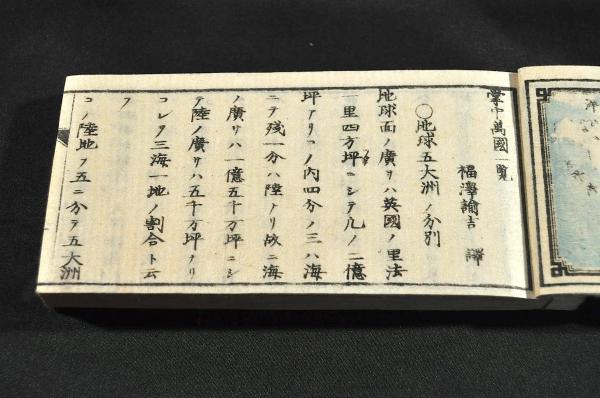 掌中萬國一覧
福澤諭吉 譯
〇地球五大洲ノ分別
地球面ノ廣サハ英國ノ里法
一里四方坪ニシテ凡ノ二億
坪アリコノ内四分ノ三ハ海
ニテ残一分ハ陸ナリ故ニ海
ノ廣サハ一億五千万坪ニシ
テ陸ノ廣サハ五千万坪ナリ
コレヲ三海一地ノ割合ト云
フ
コノ陸地ヲ五ニ分テ五大洲